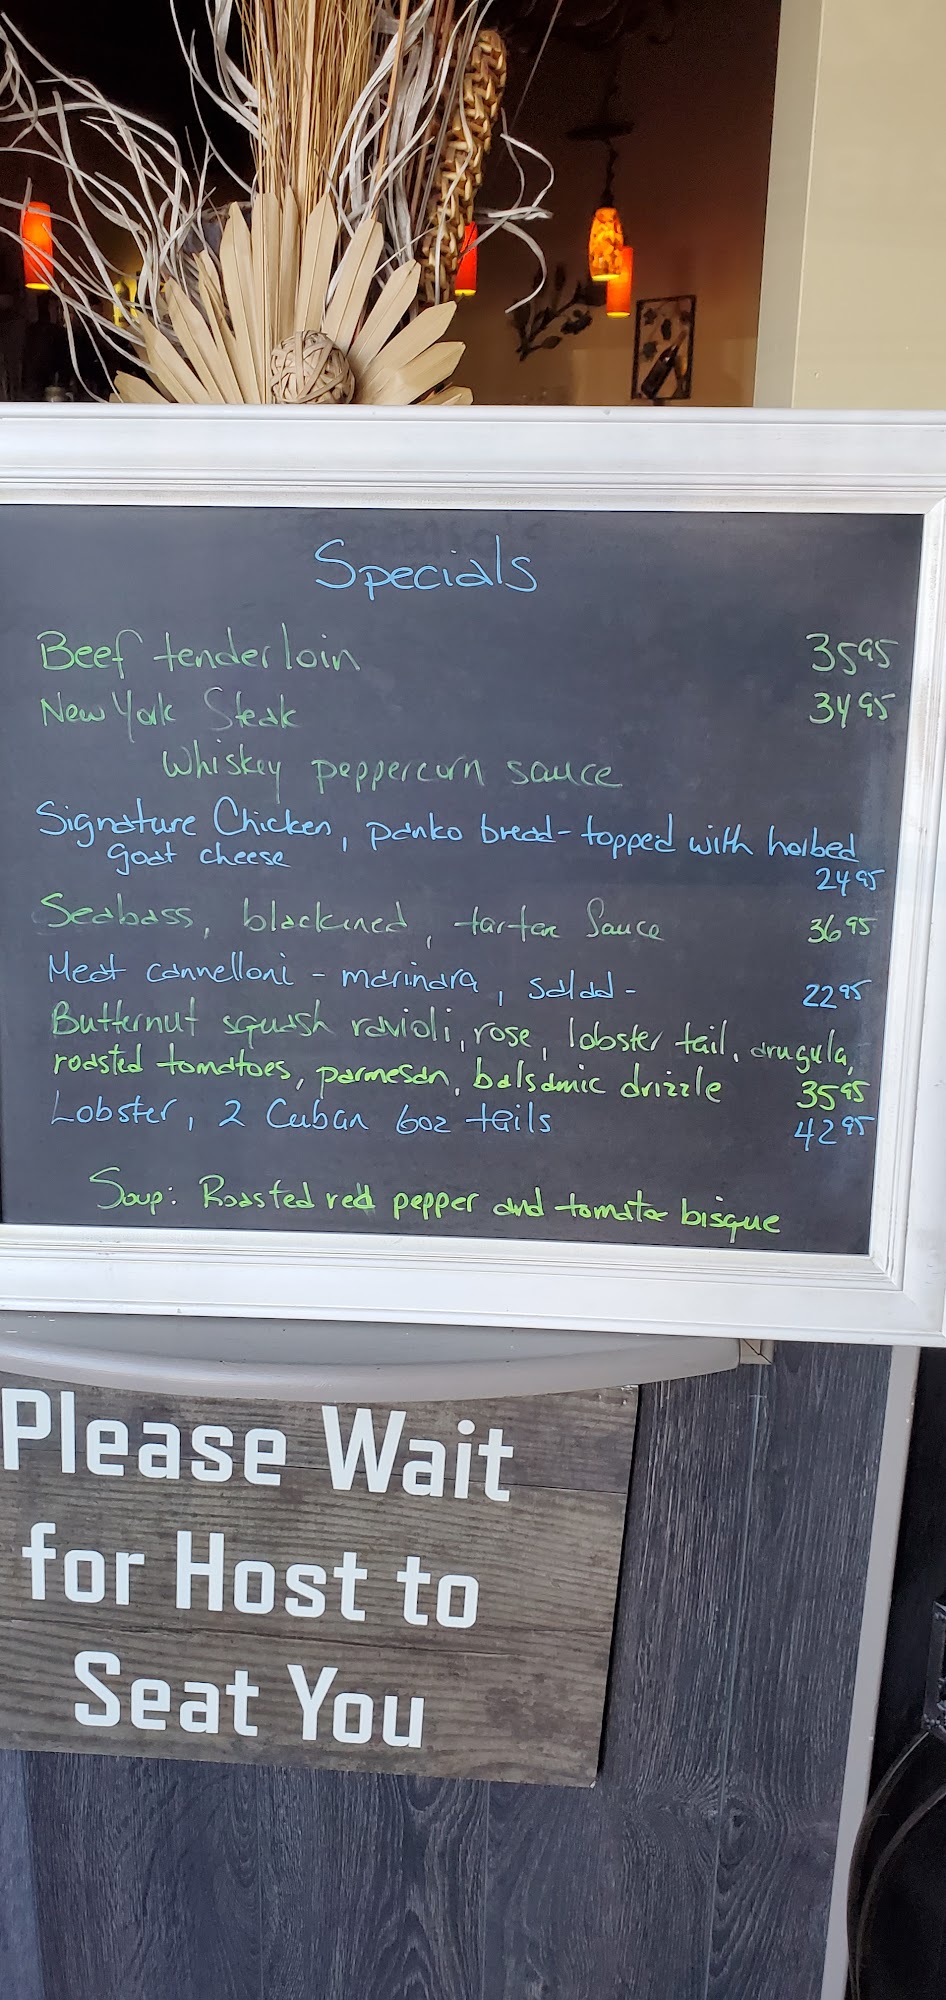 Specials
Beef tenderloin 35 95
New York Steak 34 95
Whiskey peppercorn sauce
Signature Chicken, panko bread-topped with herbed
goat cheese
24 95
Seabass, blackened, tarter Sauce 36 95
Meat cannelloni - marinara, salad - 22 95
Butternut squash ravioli, rose, lobster tail, arugula,
roasted tomatoes, parmesan, balsamic drizzle 35 95
Lobster, 2 Cuban 6oz tails 42 95
Soup: Roasted red pepper and tomato bisque
Please Wait
for Host to
Seat You